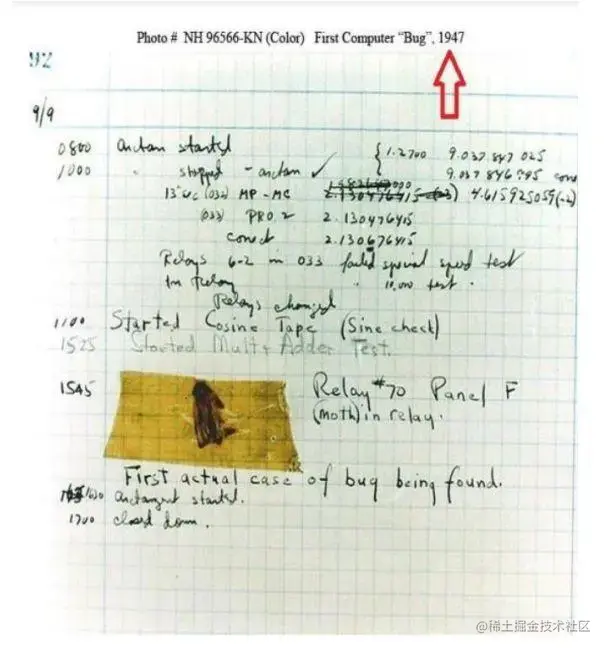 Photo # NH 96566-KN (Color) First Computer "Bug", 1947
92
9/9
0800 Antan started
1000 " stopped - antan ✓ { 1.2700 9.037 847 025
9.037 846 995
13"uc (032) MP - MC 2.130476415 4.615925059(-2)
(033) PRO. 2 2.130476415
2.130676415
Relays 6-2 in 033 failed special speed test
Relay " 10,000 test.
Relays changed
1100 Started Cosine Tape (Sine check)
1525 Started Mult + Adder Test.
1545 Relay #70 Panel F
(Moth) in relay.
First actual case of bug being found.
1630 antangent started.
1700 closed down.
@稀土掘金技术社区